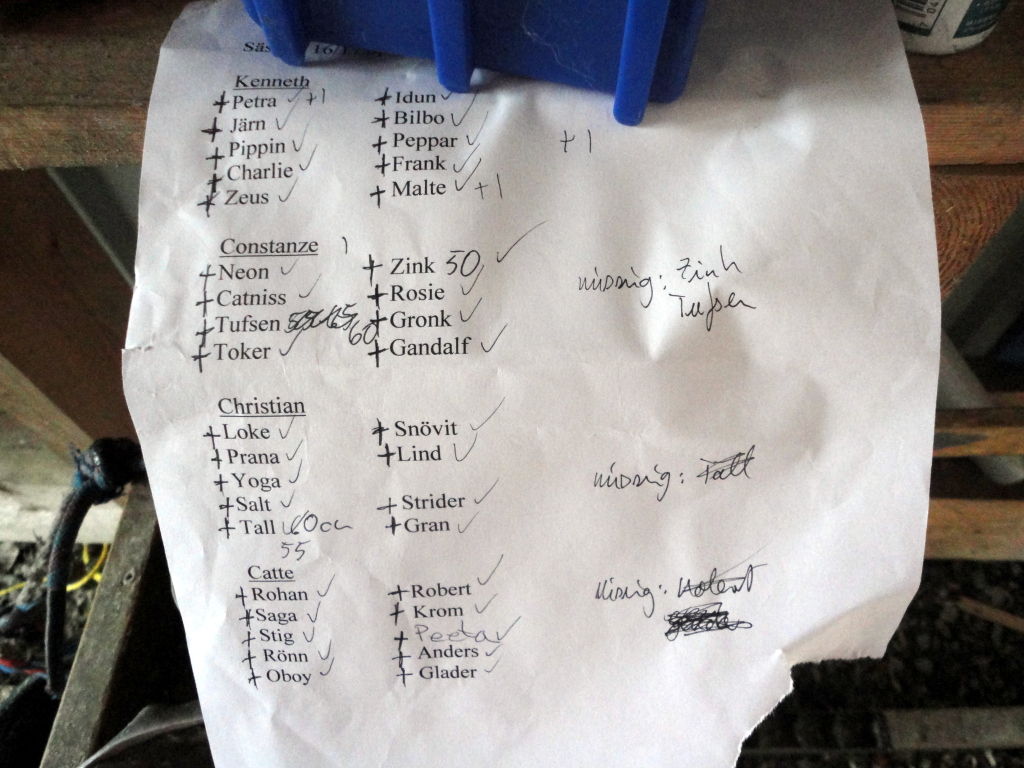 16/
Kenneth
+ Petra ✓ +1
+ Järn ✓
+ Pippin ✓
+ Charlie ✓
+ Zeus ✓
+ Idun ✓
+ Bilbo ✓
+ Peppar ✓
+ Frank ✓
+ Malte ✓ +1
+1
Constanze 1
+ Neon ✓
+ Catniss ✓
+ Tufsen 60
+ Toker ✓
+ Zink 50 ✓
+ Rosie ✓
+ Gronk ✓
+ Gandalf ✓
missing: Zink
Tufsen
Christian
+ Loke ✓
+ Prana ✓
+ Yoga ✓
+ Salt ✓
+ Tall 60cm
55
+ Snövit ✓
+ Lind ✓
+ Strider ✓
+ Gran ✓
missing: Tall
Catte
+ Rohan ✓
+ Saga ✓
+ Stig ✓
+ Rönn ✓
+ Oboy ✓
+ Robert ✓
+ Krom ✓
+ Peeta ✓
+ Anders ✓
+ Glader ✓
Missing: